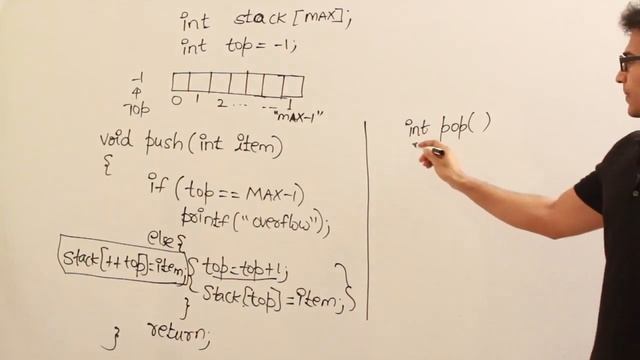 int stack[MAX];
int top = -1;
-1
TOP
0 1 2 ... --- 1
"MAX-1"
void push(int item)
{
if (top == MAX-1)
printf("overflow");
else{
stack[++top]=item; { top=top+1;
stack[top]=item; }
}
return;
}
int pop( )